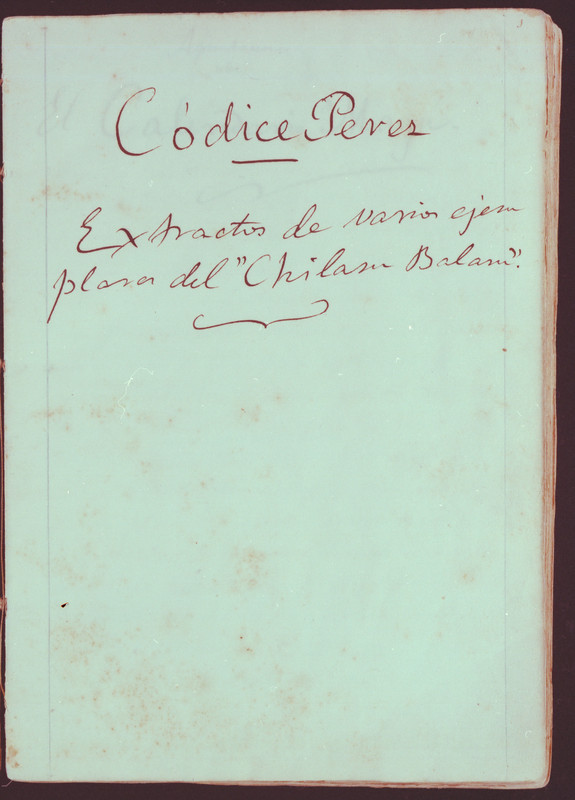 Códice Perez
Extractos de varios ejem
plares del "Chilam Balam".